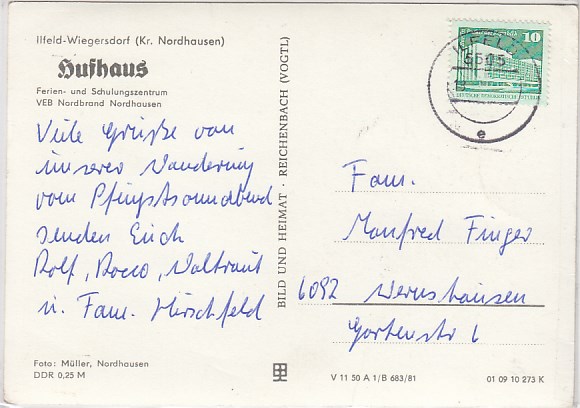 Ilfeld-Wiegersdorf (Kr. Nordhausen)
Hufhaus
Ferien- und Schulungszentrum
VEB Nordbrand Nordhausen
Viele Grüße von
unserer Wanderung
vom Pfingstsonnabend
senden Euch
Rolf, Rocco, Waltraut
u. Fam. Hirschfeld
Foto: Müller, Nordhausen
DDR 0,25 M
BILD UND HEIMAT · REICHENBACH (VOGTL)
10
6505
e
Fam.
Manfred Finger
6092 Wernshausen
Gartenstr 6
V 11 50 A 1/B 683/81
01 09 10 273 K